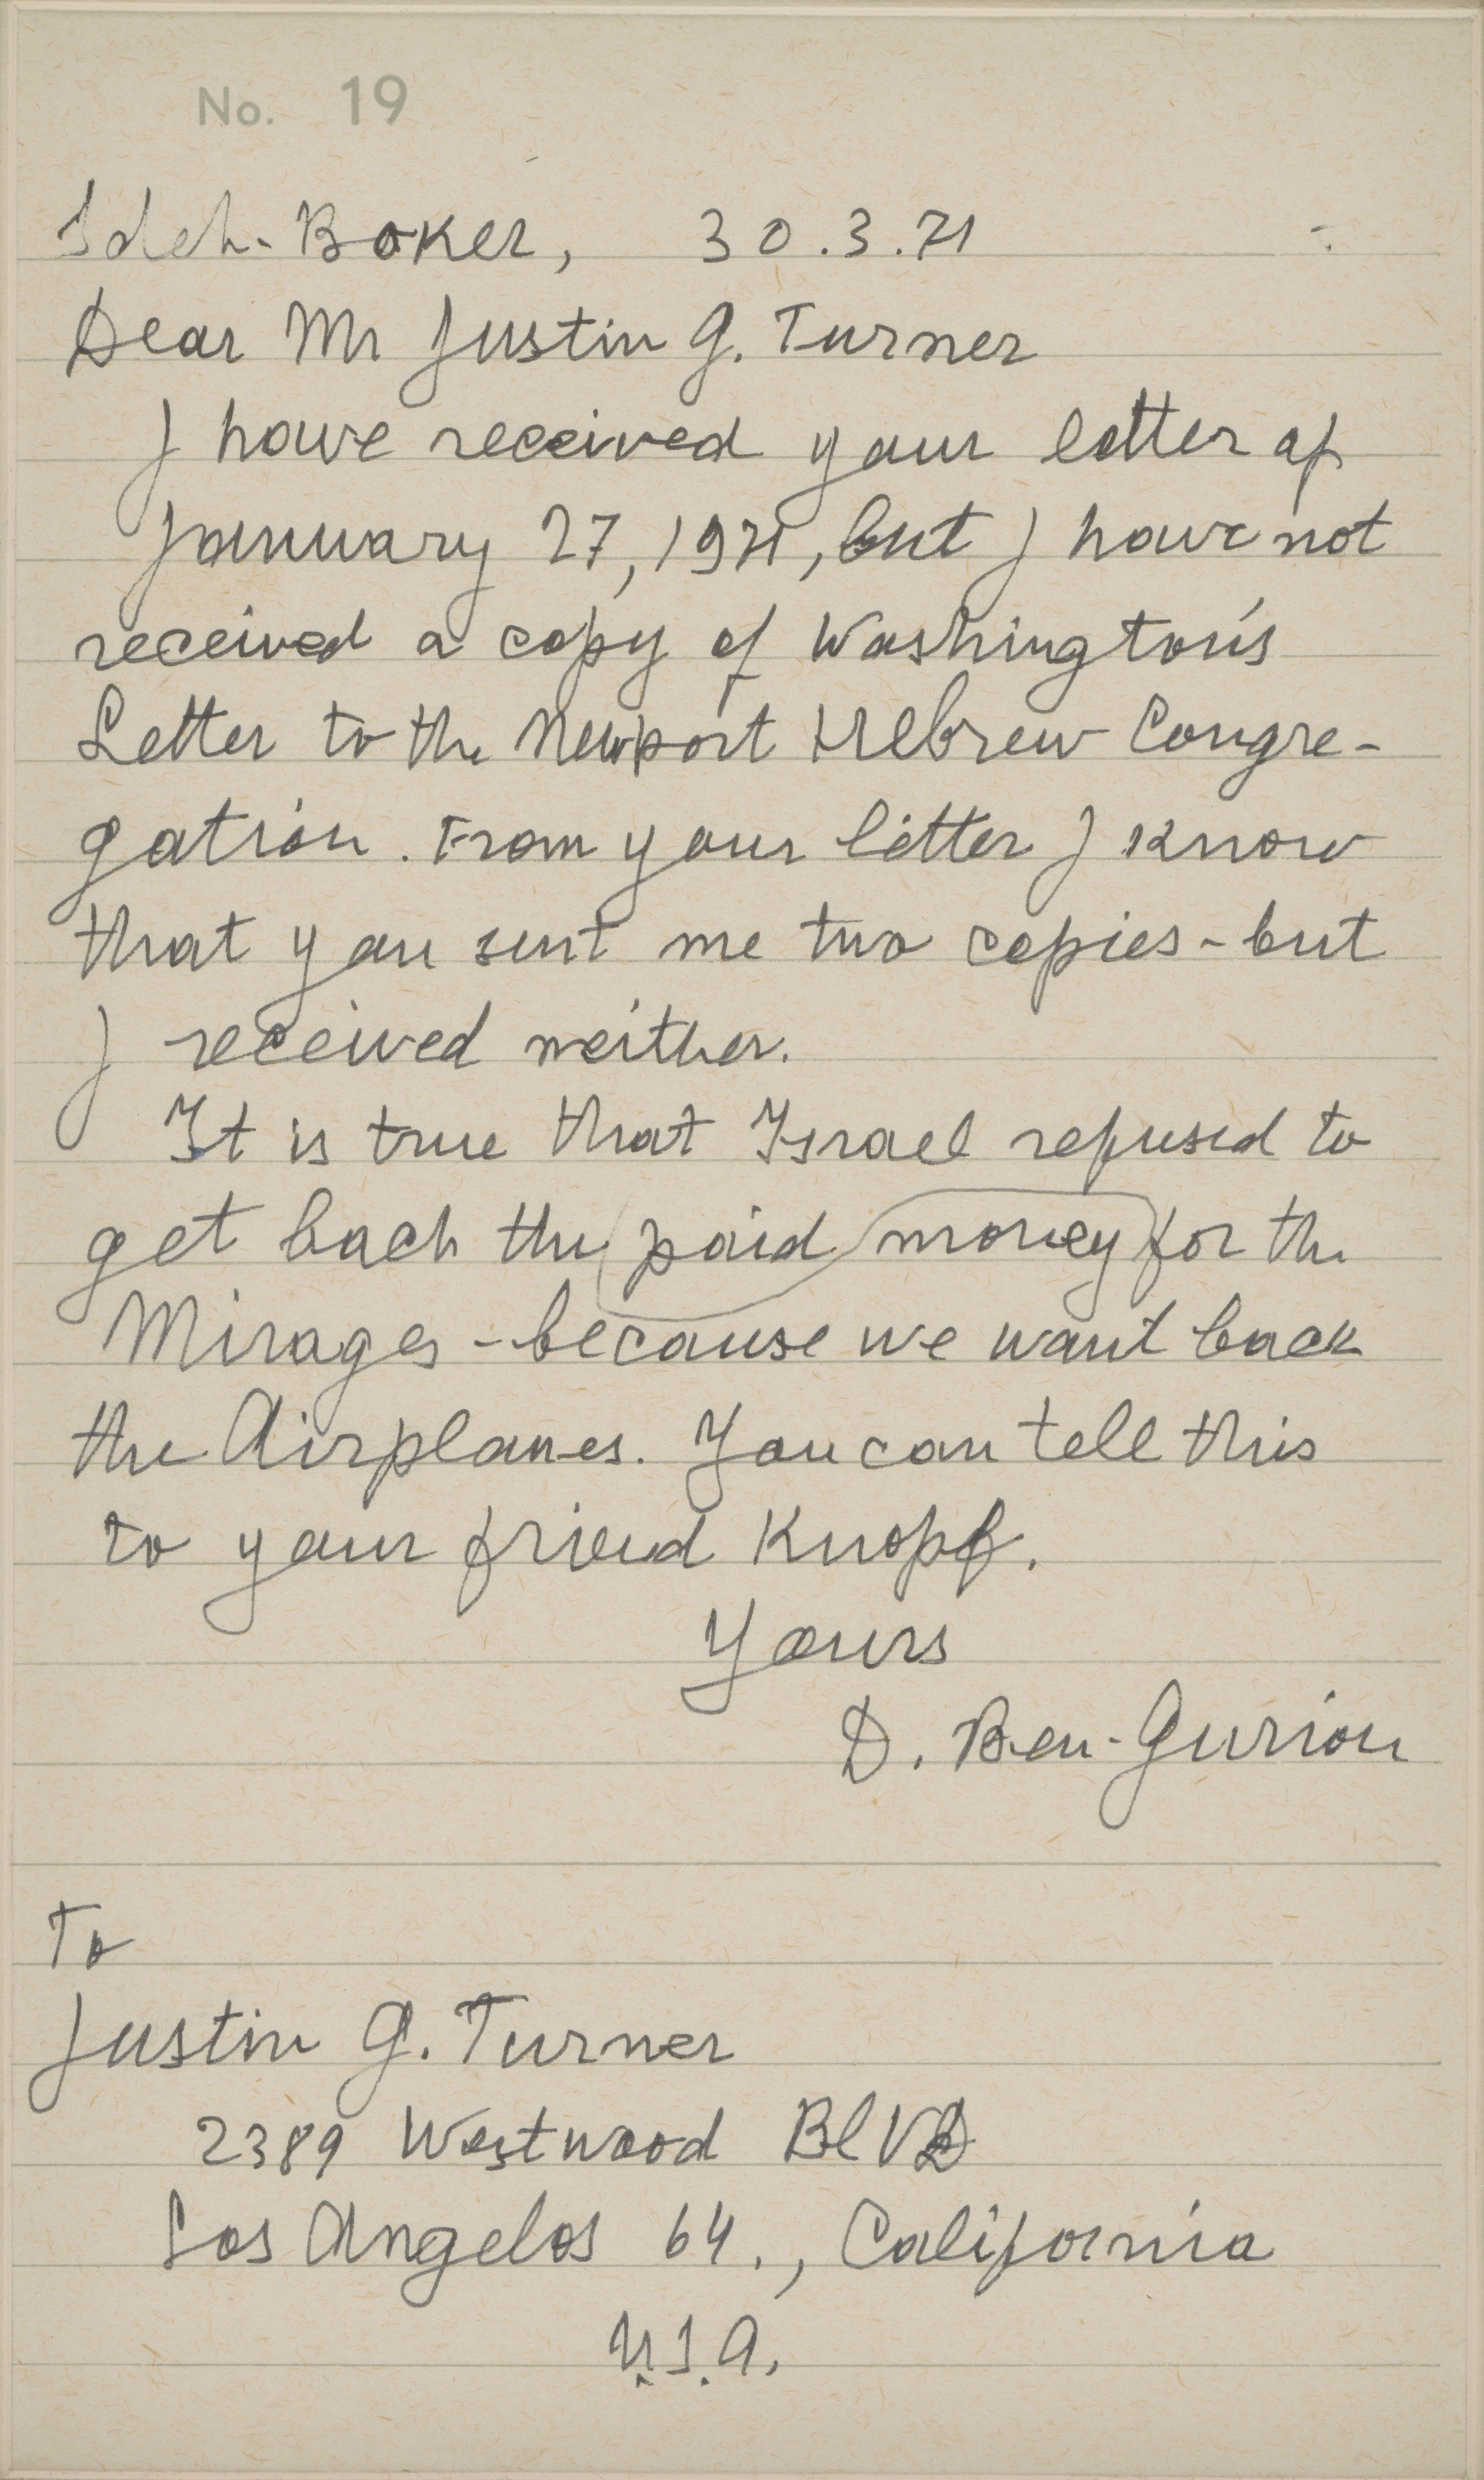 No. 19
Sdeh-Boker, 30.3.71
Dear Mr Justin G. Turner
I have received your letter of
January 27, 1971, but I have not
received a copy of Washington's
Letter to the Newport Hebrew Congre-
gation. From your letter I know
that you sent me two copies - but
I received neither.
It is true that Israel refused to
get back the paid money for the
Mirages - because we want back
the Airplanes. You can tell this
to your friend Knopf.
Yours
D. Ben-Gurion
To
Justin G. Turner
2389 Westwood BlVD
Los Angelos 64., California
U.S.A.